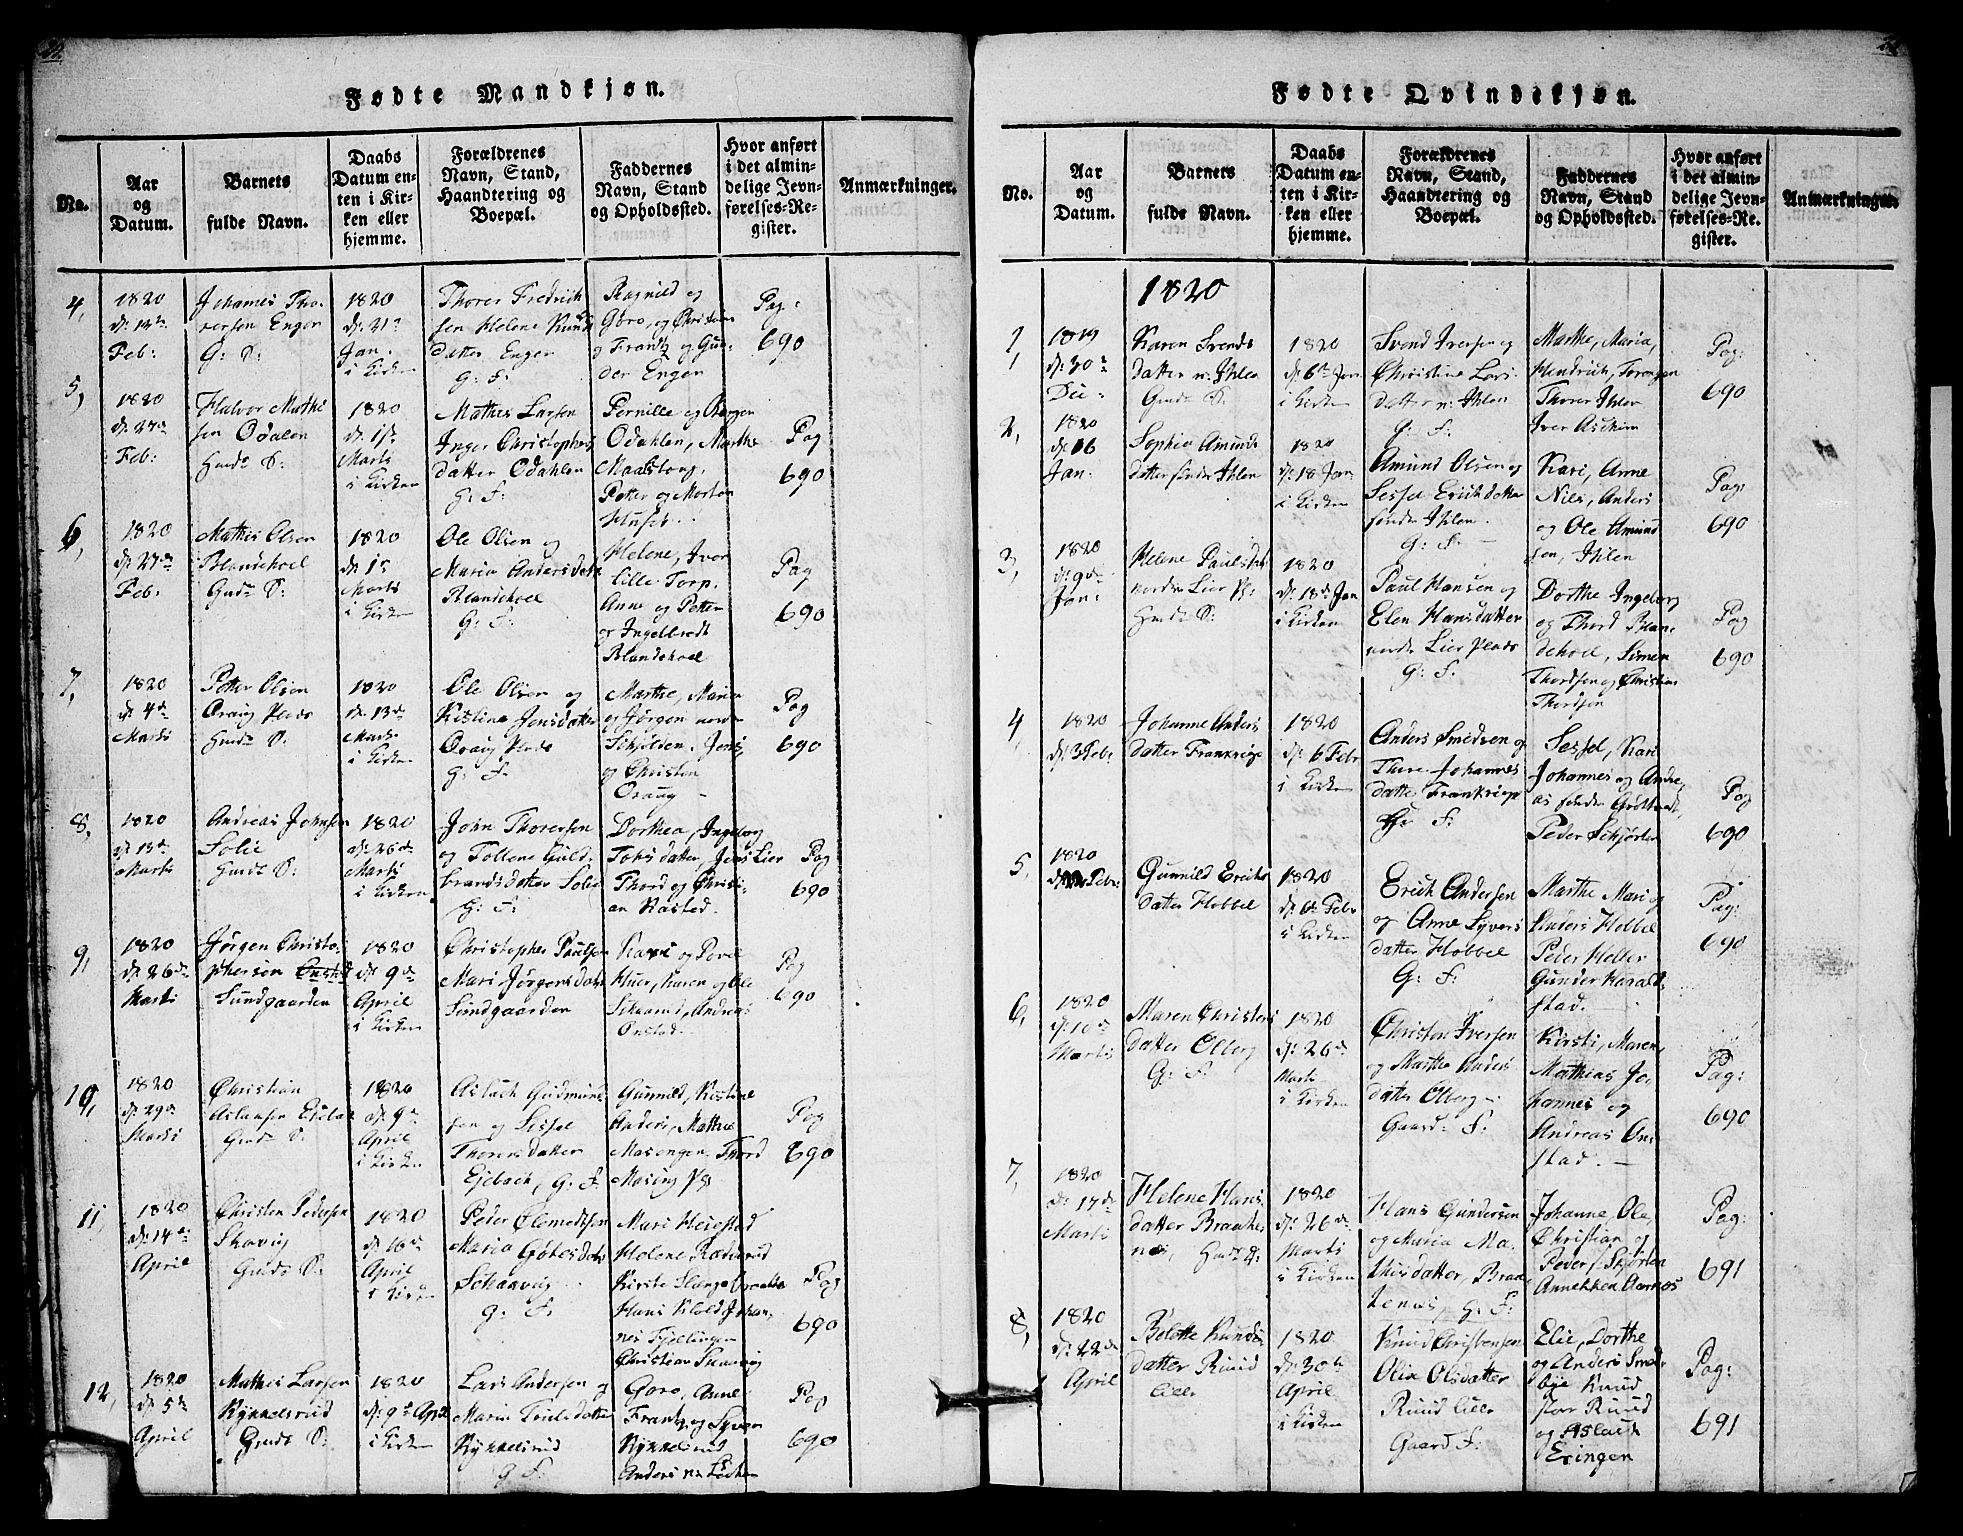 Fødte Mandkjøn.
No.
Aar
og
Datum.
Barnets
fulde Navn.
Daabs
Datum en-
ten i Kir-
ken eller
hjemme.
Forældrenes
Navn, Stand,
Haandtering og
Boepæl.
Faddernes
Navn, Stand
og Opholdssted.
Hvor anført
i det almin-
delige Jevn-
førelses-Re-
gister.
Anmærkninger.
4,
1820
Feb:
Johannes Tho-
rersen Engen
G: S:
1820
d: 21
Jan.
i Kirken
Thorer Fredrich
sen Helene Knuds
datter Engen
G: F:
Ragnild og
Goro, og Christian
og Frantz og Gun-
der Engen
Pag:
690
5,
1820
Feb:
Halvor Mathi
sen Odalen
S:
1820
Marts
i Kirken
Mathis Larsen
Inger Christophers
datter Odahlen
G: F:
Pernille og
Odahlen, Marthe
Petter og Morten
Pag
690
6,
1820
Feb:
Mathis Olsen
Blandehoel
S:
1820
Marts
i Kirken
Ole Olsen og
Maria Andersdatt
Blandehoel
G: F:
Helene, Iver
Lille Torp,
Anne og Petter
og Ingelbredt
Blandehoel
Pag
690
7,
1820
d: 4de
Marts
Petter Olsen
Oraug Plads
S:
1820
d: 13de
Marts
i Kirken
Ole Olsen og
Kistine Jensdatter
Oraug Plads
G: F:
Marthe, Maria
og Jørgen
Jens
og Christen
Oraug
Pag
690
8,
1820
d: 13de
Marts
Andreas Johnsen
Solie
S:
1820
d: 26de
Marts
i Kirken
John Thorersen
og Tollene Guld-
brandsdatter Solie
G: F:
Dorthea, Ingeborg
datter, Jens Lier
Thord og Christi-
an Rasted.
Pag
690
9,
1820
d: 26de
Marts
Jørgen Christo-
phersen
Sundgaarden
1820
d: 9de
April
i Kirken
Christopher Paulsen
Mari Jørgensdatt
Sundgaarden
Karen og Ole
Andreas
Onstad
Pag
690
10,
1820
d: 29de
Marts
Christian
S:
1820
d: 9de
April
i Kirken
Aslach Gudmund
sen og Sissel
Thorersdatter
Ejebach, G: F:
Gunnild, Kistine
Anders, Mathis
Masengen, Thord
Pag
690
11,
1820
d: 14de
April
Christen Pedersen
Skavig
S:
1820
d: 16de
April
i Kirken
Peder Clemedtsen
Maria
Schavig
G: F:
Mari
Helene
Kirsti
Hans
nes Fjellingen
Christian Skavig
Pag
690
12,
1820
d: 5te
April
Mathis Larsen
Kykkelsrud
S:
1820
d: 9de April
i Kirken
Lars Andersen og
Maria Truls datter
Kykkelsrud
G: F:
Goro, Anne
Frantz og Syver
Kykkelsrud
Anders
Pag
690
Fødte Qvindekjøn.
No.
Aar
og
Datum.
Barnets
fulde Navn.
Daabs
Datum en-
ten i Kir-
ken eller
hjemme.
Forældrenes
Navn, Stand,
Haandtering og
Boepæl.
Faddernes
Navn, Stand
og Opholdssted.
Hvor anført
i det almin-
delige Jevn-
førelses-Re-
gister.
Anmærkninger.
1820
1,
1819
d: 30
Karen Svends
datter n: Ihlen
S:
1820
d: 6te Jan
i Kirken
Svend Iversen og
Christine Lars
datter n: Ihlen
G: F:
Marthe, Maria,
Hendrich,
Thorer Ihlen
Iver Askim
Pag:
690
2,
1820
d: 16
Jan.
Sophia Amunds
datter søndre Ihlen
1820
d: 18 Jan
i Kirken
Amund Olsen og
Sessel Erichdatter
søndre Ihlen.
G: F:
Kari, Anne
Nils, Anders
og Ole Amund
sen, Ihlen
Pag:
690
3,
1820
d: 9de
Jan:
Helene Paulsdat
nordre Lier Pl:
S:
1820
d: 18de Jan
i Kirken
Paul Hansen og
Elen Hansdatter
nordre Lier Plads
G: F:
Dorthe Ingeborg
og Thord Blan-
dehoel, Simen
Thordsen og Christian
Thordsen
Pag
690
4,
1820
d: 3 Febr
Johanne Anders
datter Frankrige
1820
d: 6 Febr
i Kirken
Anders Smedsen og
Thore Johannes
datte Frankrige
G: F:
Sessel, Kari
Johannes og Andre-
as søndre
Peder Schjørten
Pag
690
5,
1820
Febr:
Gunnild Erichs
datter Hobbel
1820
d: 6te Febr
i Kirken
Erich Andersen
og Anne Syvers
datter Hobbel
G: F:
Marthe Mari og
Anders Hobbel
Peder Heller
Gunder Harald-
stad.
Pag:
690
6,
1820
d: 10de
Marts
Maren Christens
datter Olberg
G: F:
1820
d: 26de
Marts
i Kirken
Christen Iversen
og Marthe Anders
datter Olberg
Gaard: F:
Kirsti, Maren,
Mathias Jo-
hannes og
Andreas On-
stad.
Pag:
690
7,
1820
d: 17de
Marts
Helene Hans
datter Braate
nes,
1820
d: 26de
Marts
i Kirken
Hans Gundersen
og Maria Ma-
thisdatter, Braa-
tenes, G: F:
Johanne, Ole,
Christian og
Peder s. Skjørten
Annekken Aarnes
Pag:
691
8,
1820
d: 22de
April
Bolette Knuds
datter Ruud
Lille
1820
d: 30te
April
i Kirken
Knud Christensen
Olia Olsdatter
Ruud Lille
Gaard F:
Elie, Dorthe
og Anders Smed-
bye Knud
stor Ruud
og Aslach
Eringen
Pag:
691